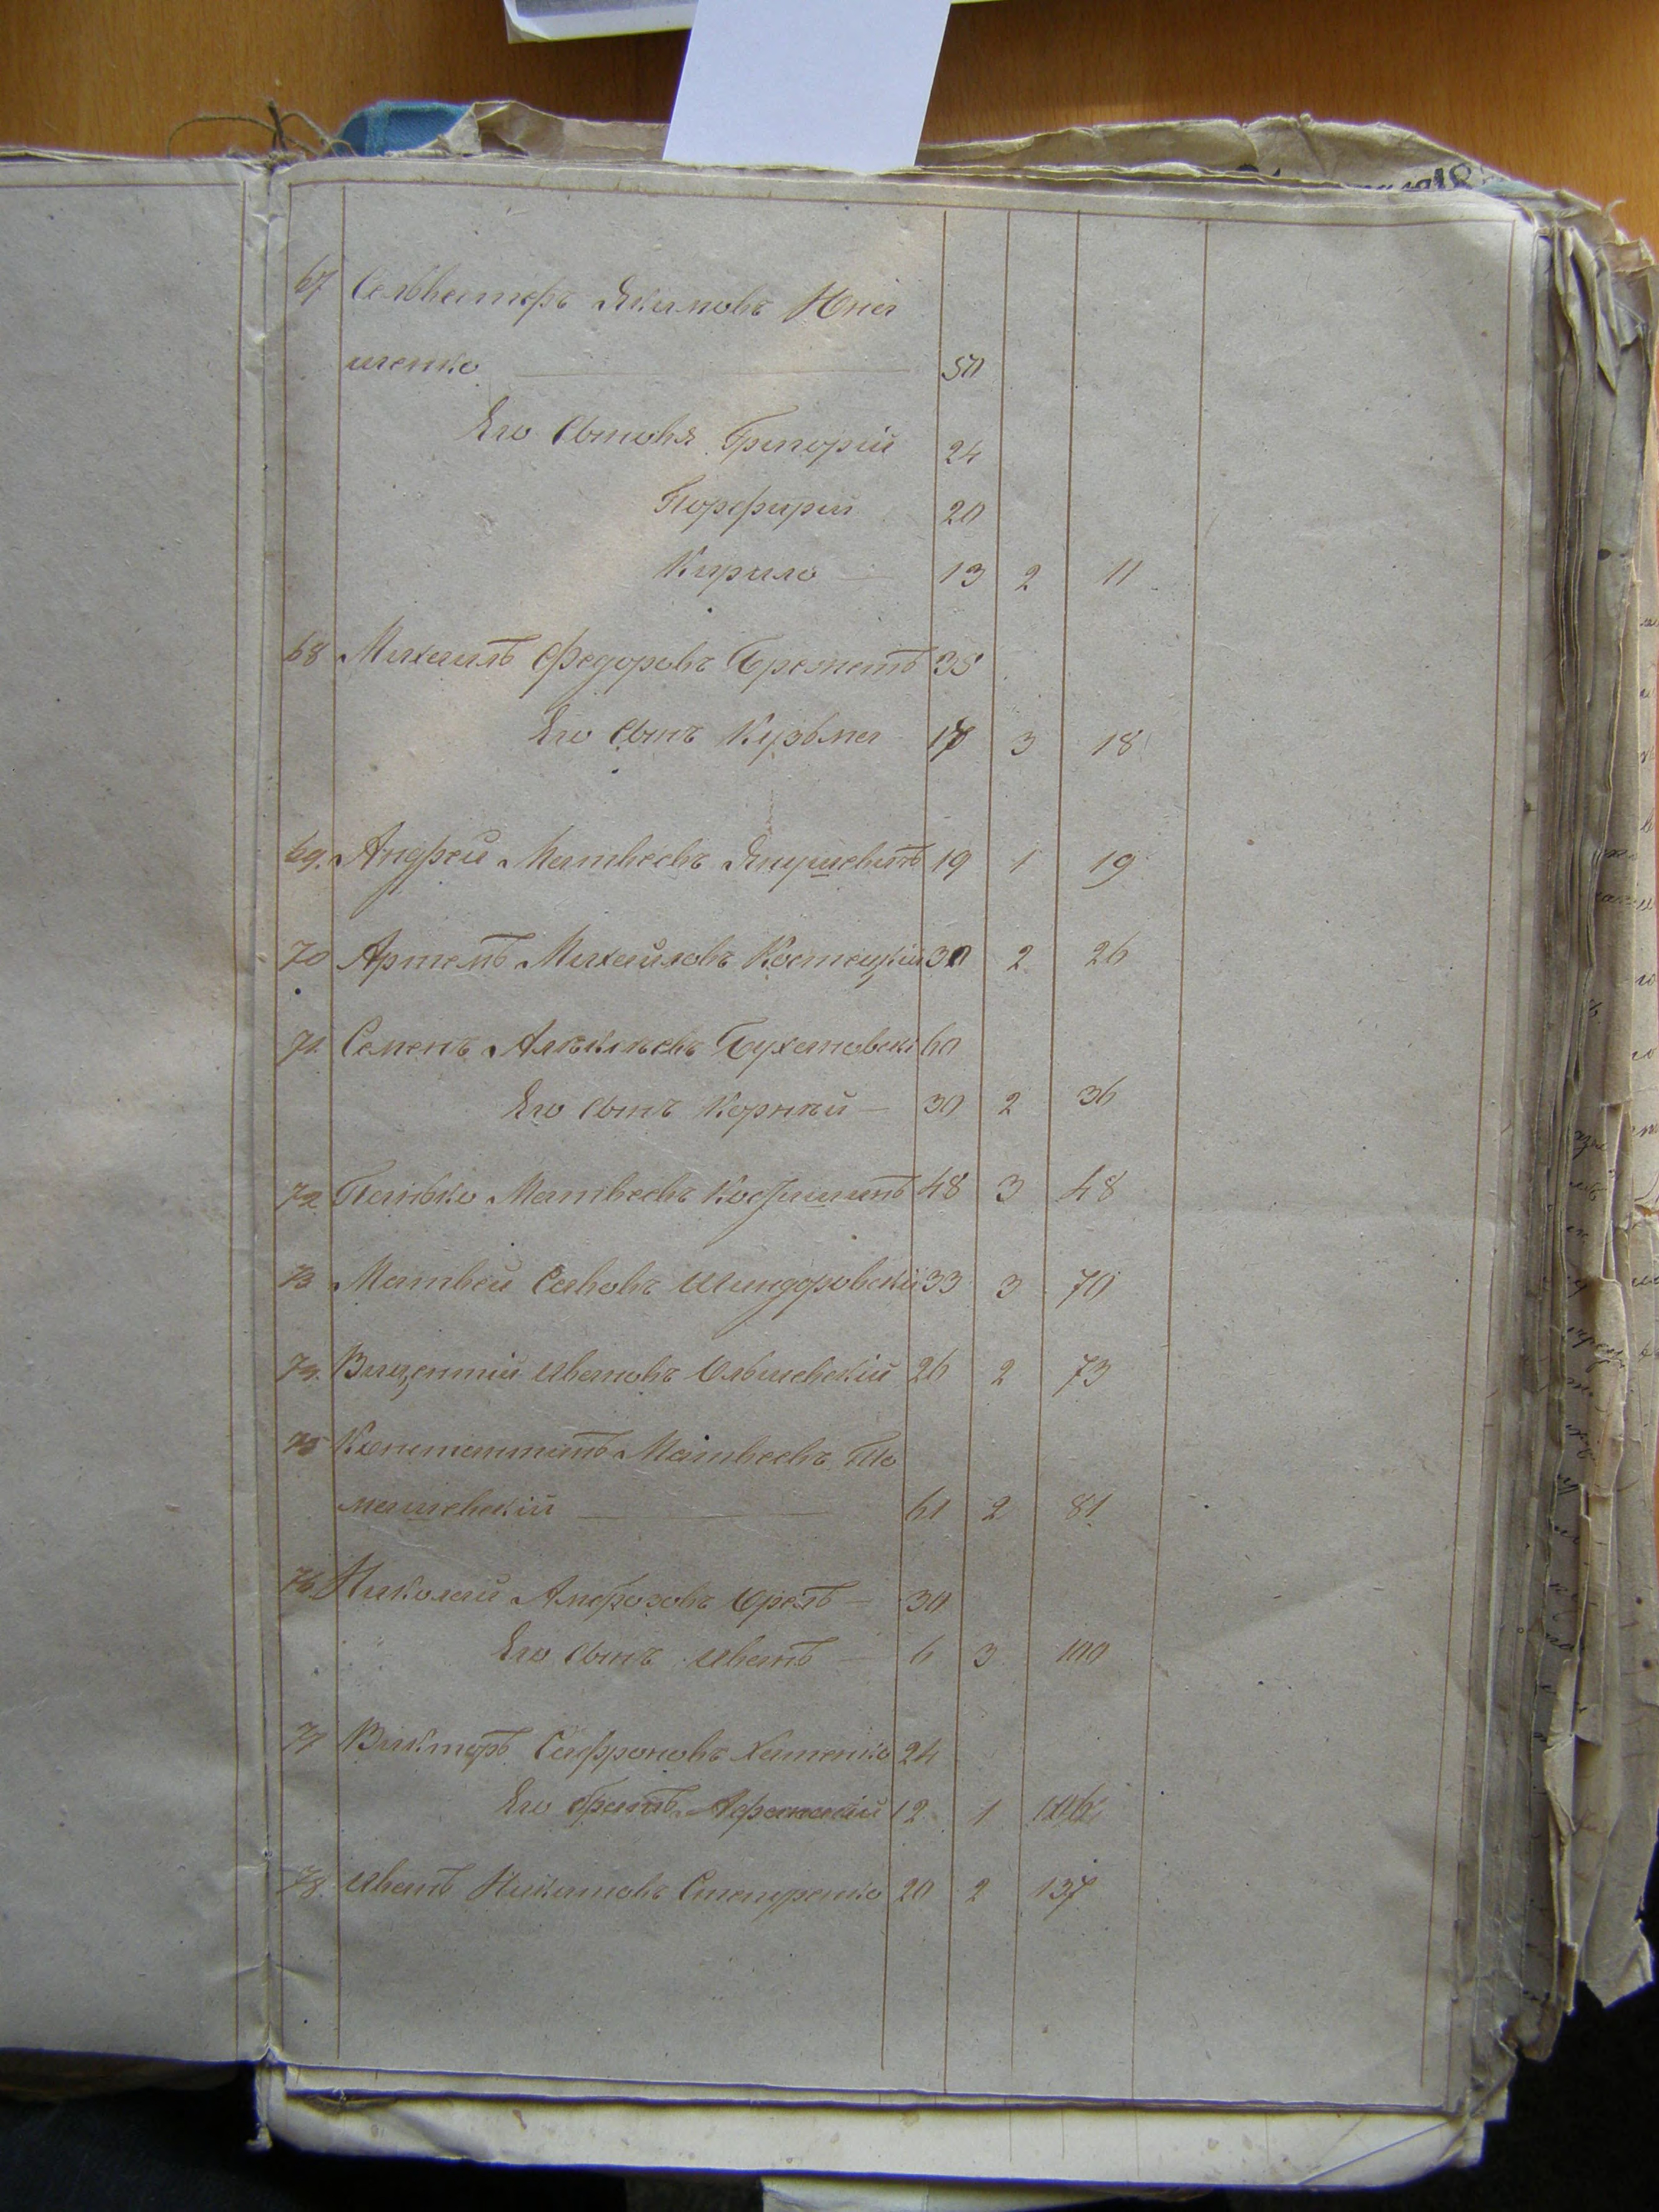 67 Сельвестръ Якимовъ Юна
шенко 50
Его Сыновя Григорій 24
Порфирий 20
Кирило 13 2 11
68 Михаилъ Федоровъ 38
Его Сынъ Кузьма 17 3 18
69. Андрей Матвеевъ Янушевичъ 19 1 19
70 Артемъ Михайловъ Костецкій 30 2 26
71. Семенъ Алѣксѣевъ 60
Его Сынъ Корнѣй 30 2 36
72 Панько Матвеевъ 48 3 48
73 Матвей Савовъ Шиндоровскій 33 3 70
74. Вицентій Ивановъ Ольшевскій 26 2 73
75 Константинъ Матвеевъ То
машевскій 61 2 81
76. Николай Амброзовъ Орелъ 30
Его Сынъ Иванъ 6 3 100
77 Викторъ Сафроновъ Хоменко 24
Его братъ 12 1
78. Иванъ Никитовъ Степуренко 20 2 137